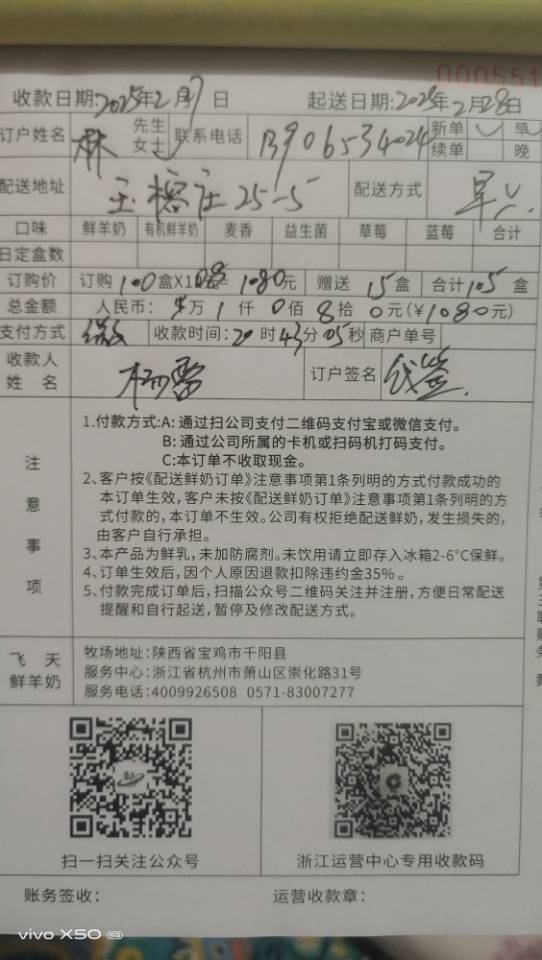 000551
收款日期:2025年2月17日 起送日期:2025年2月28日
订户姓名 林 先生 女士 联系电话 13906534024 新单 早
续单 晚
配送地址 25-5 配送方式 早
口味 鲜羊奶 有机鲜羊奶 麦香 益生菌 草莓 蓝莓 合计
日定盒数
订购价 订购100盒X10.8=1080元 赠送 15盒 合计105盒
总金额 人民币: 万1仟0佰8拾0元(¥1080元)
支付方式 收款时间:20时43分05秒 商户单号
收款人 姓名 杨 订户签名 代签
注意事项
1.付款方式:A: 通过扫公司支付二维码支付宝或微信支付。
B: 通过公司所属的卡机或扫码机打码支付。
C:本订单不收取现金。
2、客户按《配送鲜奶订单》注意事项第1条列明的方式付款成功的
本订单生效,客户未按《配送鲜奶订单》注意事项第1条列明的方
式付款的,本订单不生效。公司有权拒绝配送鲜奶,发生损失的,
由客户自行承担。
3、本产品为鲜乳,未加防腐剂。未饮用请立即存入冰箱2-6°C保鲜。
4、订单生效后,因个人原因退款扣除违约金35%。
5、付款完成订单后,扫描公众号二维码关注并注册,方便日常配送
提醒和自行起送,暂停及修改配送方式。
飞天 鲜羊奶
牧场地址:陕西省宝鸡市千阳县
服务中心:浙江省杭州市萧山区崇化路31号
服务电话:4009926508 0571-83007277
扫一扫关注公众号 浙江运营中心专用收款码
账务签收: 运营收款章:
vivo X50 5G